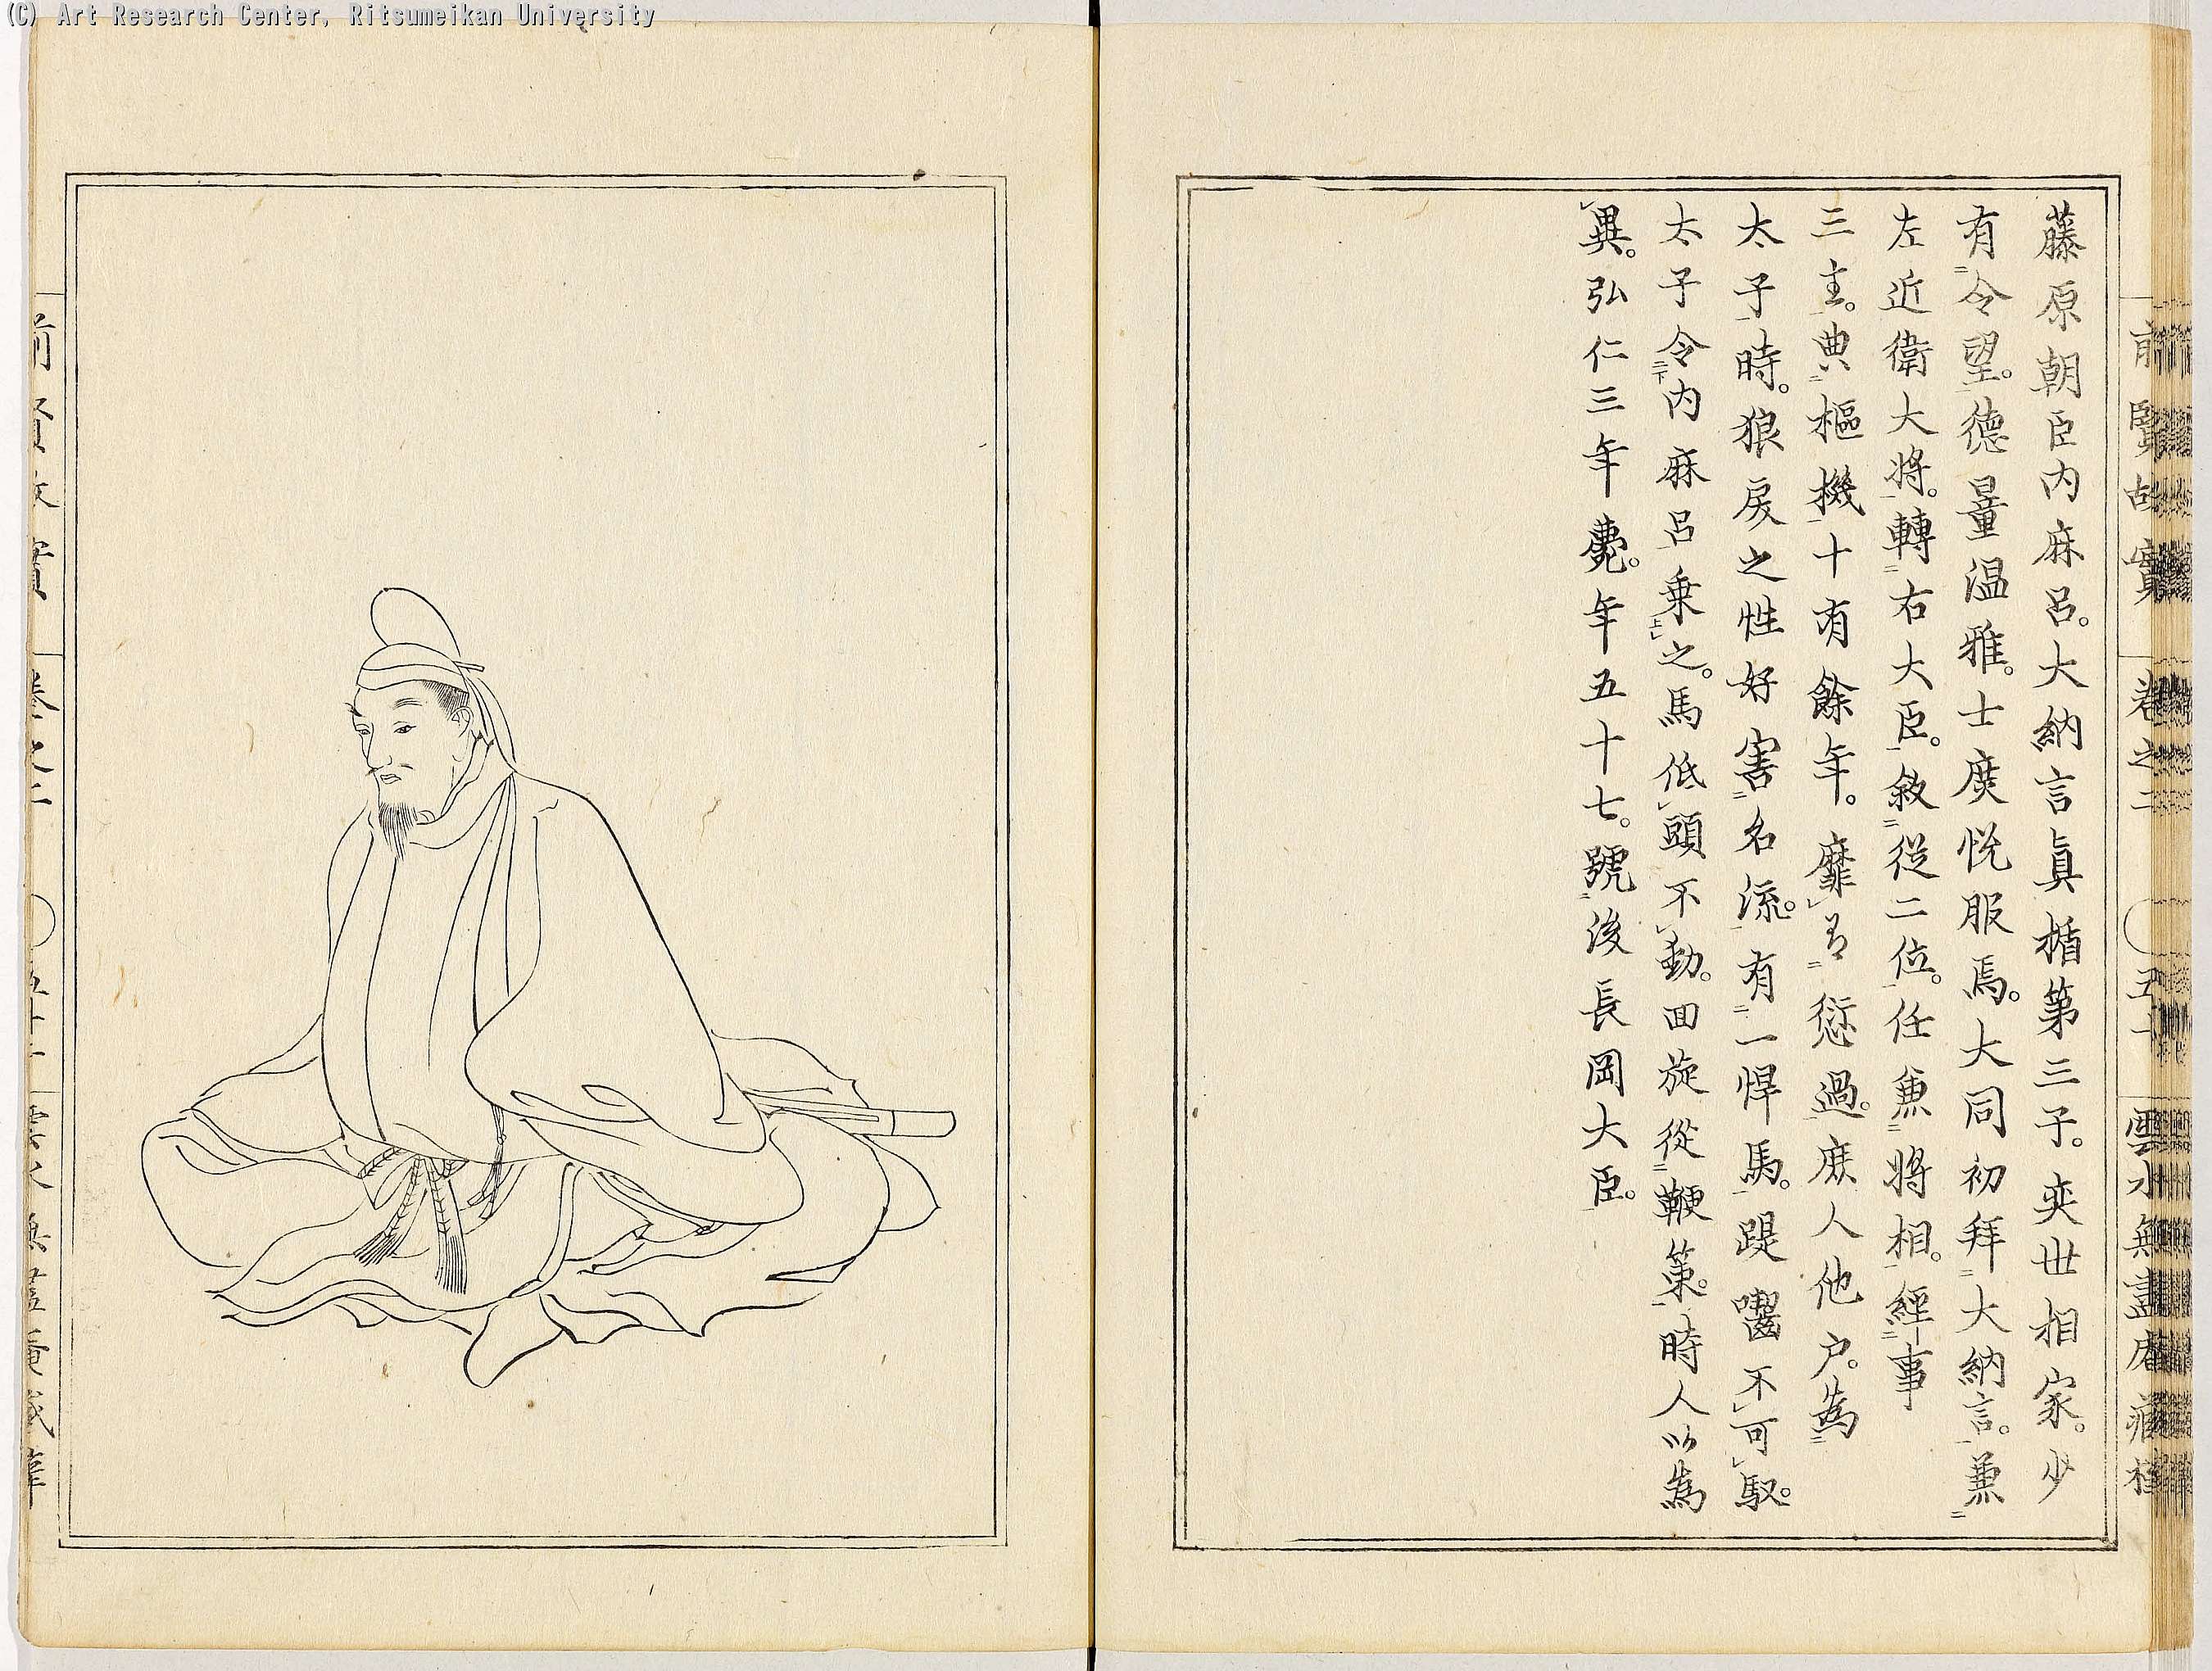 (C) Art Research Center, Ritsumeikan University
前賢故實 卷之二 〇五十 雲水無盡庵藏
藤原朝臣内麻呂。大納言眞楯第三子。奕世相家。少
有令望。德量温雅。士庶悦服焉。大同初拜大納言。兼
左近衛大將。轉右大臣。敘從二位。任兼將相。經事
三主。典樞機十有餘年。靡有愆過。庶人他户。為
太子時。狼戾之性好害名流。有一悍馬。踶囓不可馭。
太子令内麻呂乗之。馬低頭不動。回旋從鞭策。時人以為
異。弘仁三年薨。年五十七。號後長岡大臣。